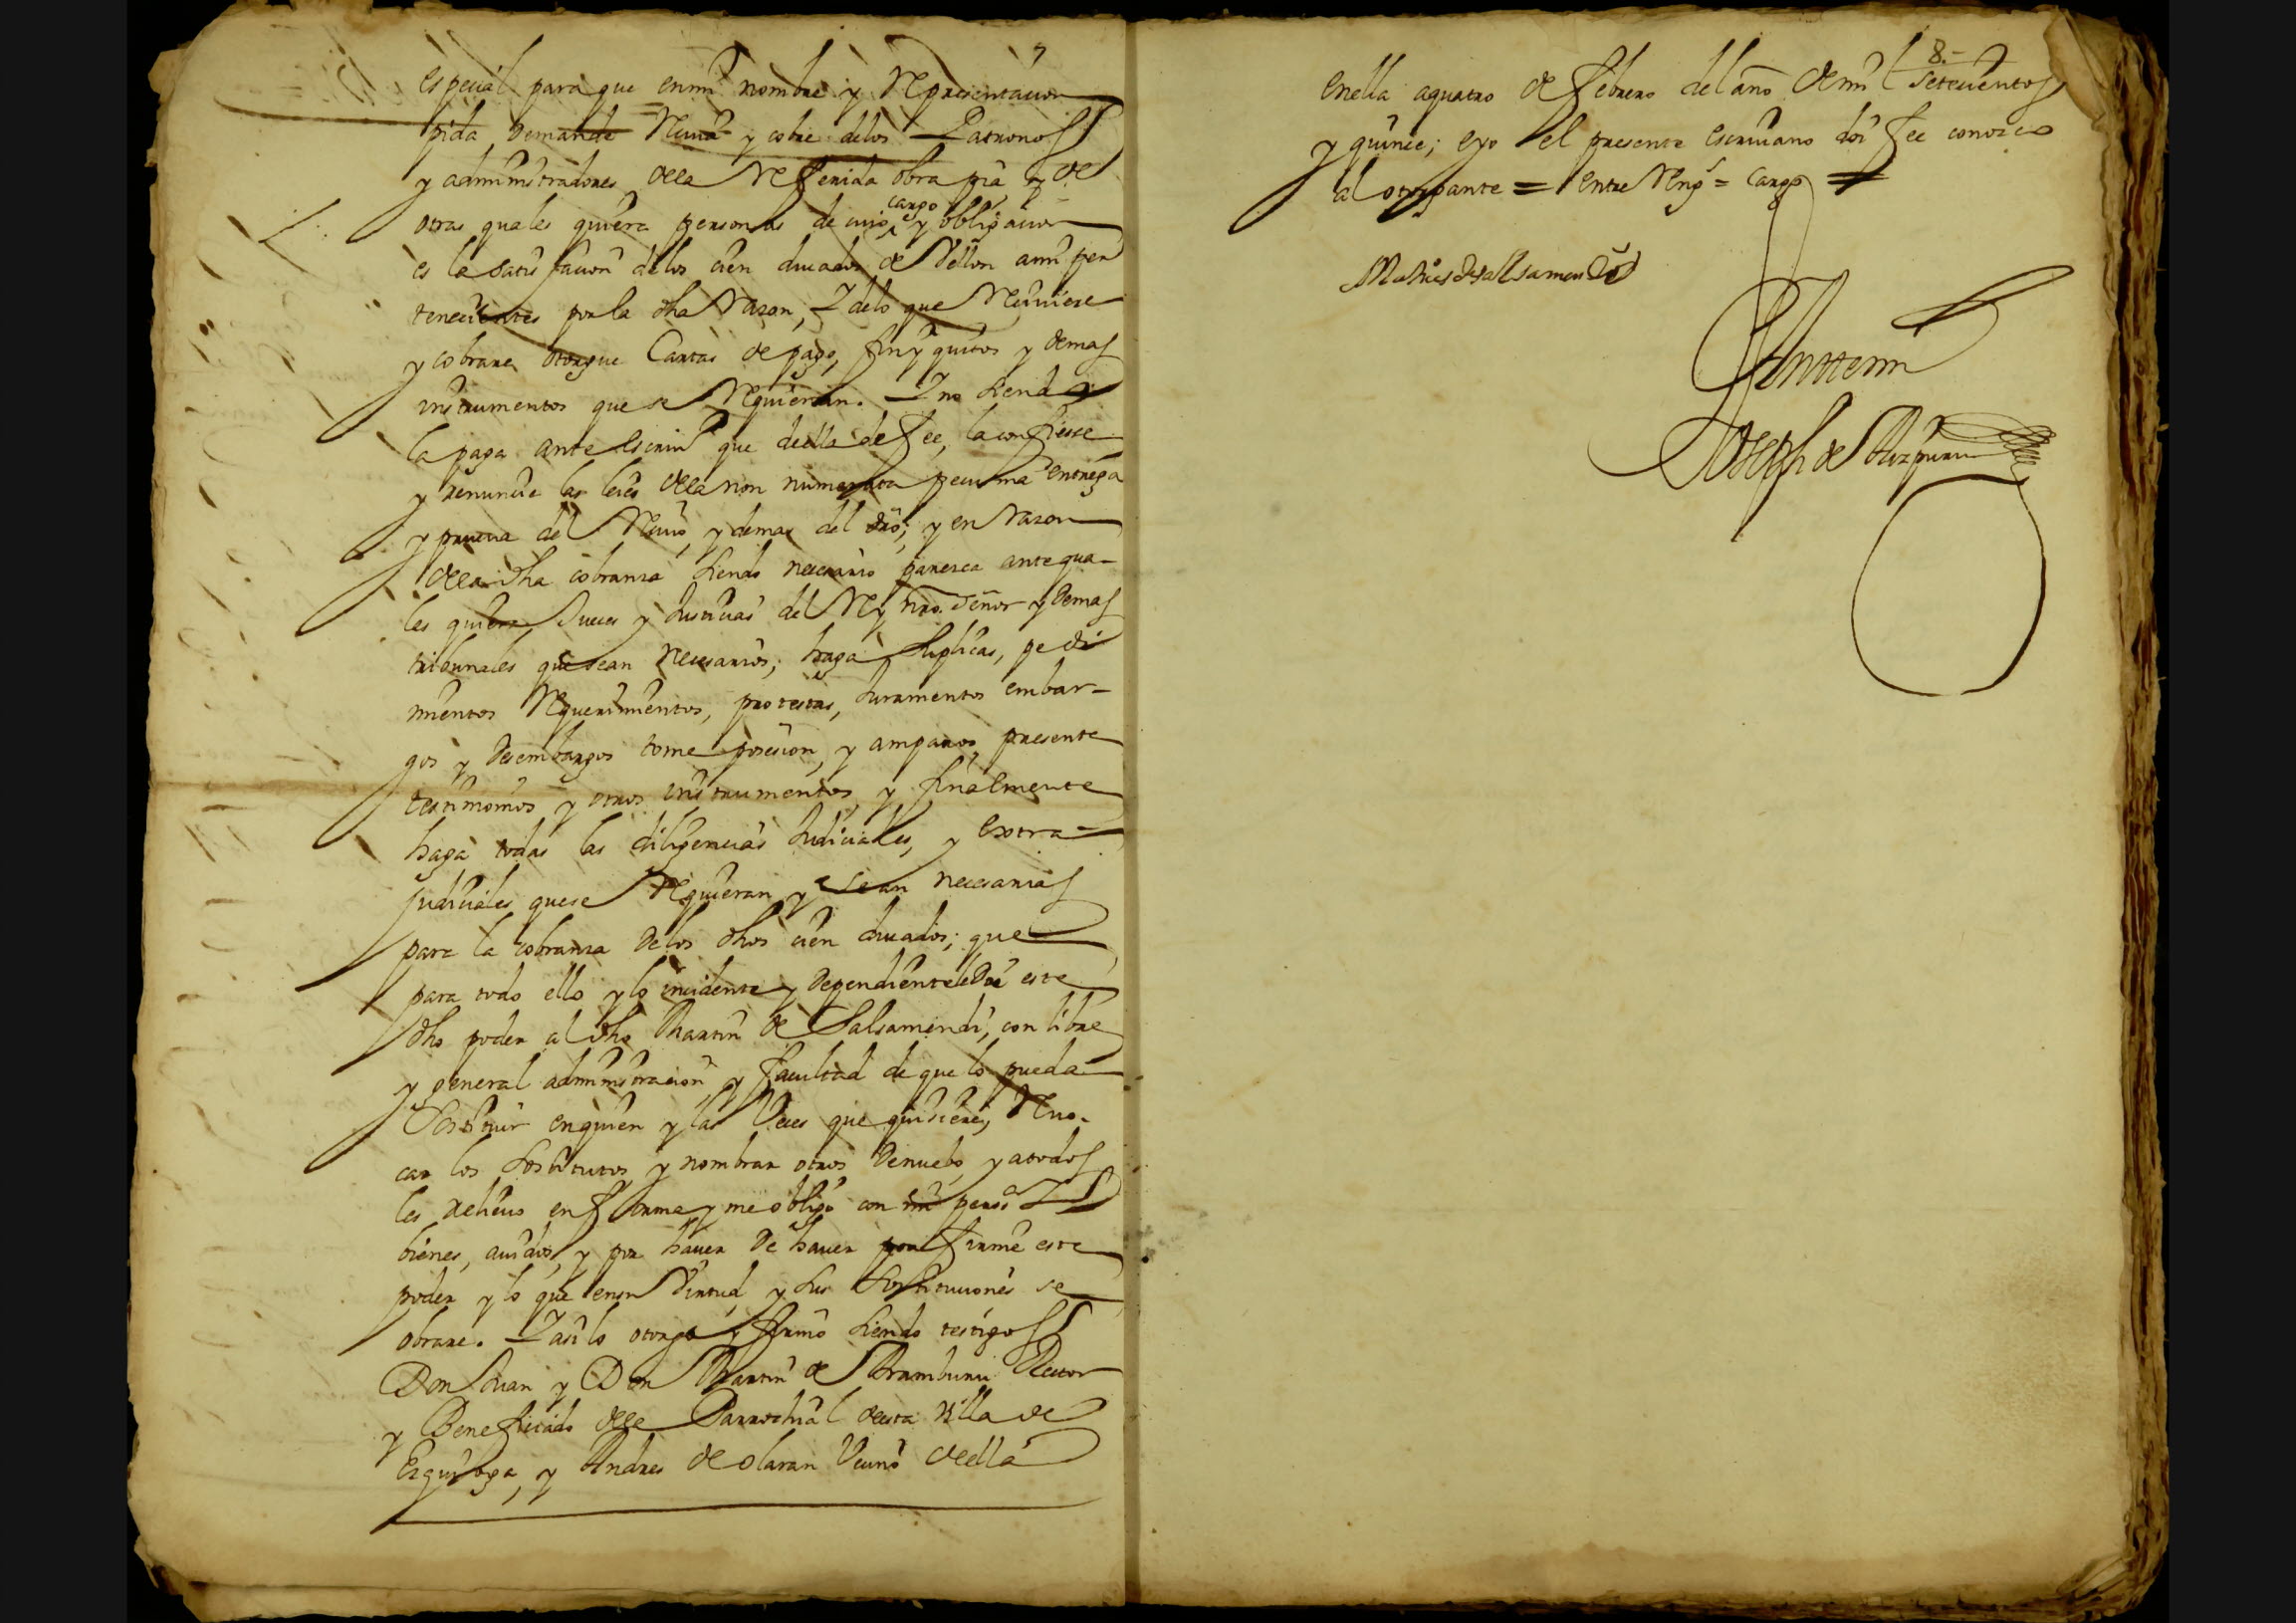 especial para que enmi nombre y Representacion
pida Demande Reciva y cobre delos Patronos
y administradores dela Referida obra pia y de
otras quales quiera personas de cuio cargo y obligacion
es la satisfacion delos cien ducados de Vellon ami per
tenecientes por la dha Razon, Y delo que Reciviere
y cobrare otorgue Cartas de pago, finyquitos y demas
instrumentos que se Requieran. Y no siendo
la paga ante escriuo que deella de fee, la confiese
y renuncie las leies dela non numerata pecunia entrega
y prueva del Reciuo, y demas del dro; y en razon
dela dha cobranza siendo necesario paresca ante qua-
les quiera Jueces y Justicias del Rey nro. señor y demas
tribunales que sean necesarios; haga suplicas, pedi
mientos Requerimientos, protestas, Juramentos embar-
gos y desembargos tome posesion, y amparos, presente
testimonios y otros instrumentos, y finalmente
haga todas las diligencias Judiciales, y extra-
judiciales quese Requieran y sean necesarias
para la cobranza delos dhos cien ducados; que
para todo ello y lo incidente y dependiente le doi este
dho poder al dho Martin de Salsamendi, con libre
y general administracion y facultad de que lo pueda
Sostituir enquien y las Veces que quisiere, Revo-
car los sostitutos y nombrar otros denuebo y atodos
les relieuo en forma y me obligo con mi persa Y
bienes, auidos, y por hauer de hauer por firme este
poder y lo que ensu Virtud, y sus sostituciones se
obrare. Y asi lo otorgo y firmo siendo testigos
Don Juan y Don Martin de Aramburu Rector
y Beneficiado dela Parrochial desta Villa de
Ezquioga, y Andres de olaran Vecino deella
8.-
enella aquatro de febrero del año de mil setecientos
y quince; eyo el presente escriuano doi fee conozco
al otorgante = entre Rengs = cargo =
Mathias de salsamendi
Antemi
Joseph de Aizpuru